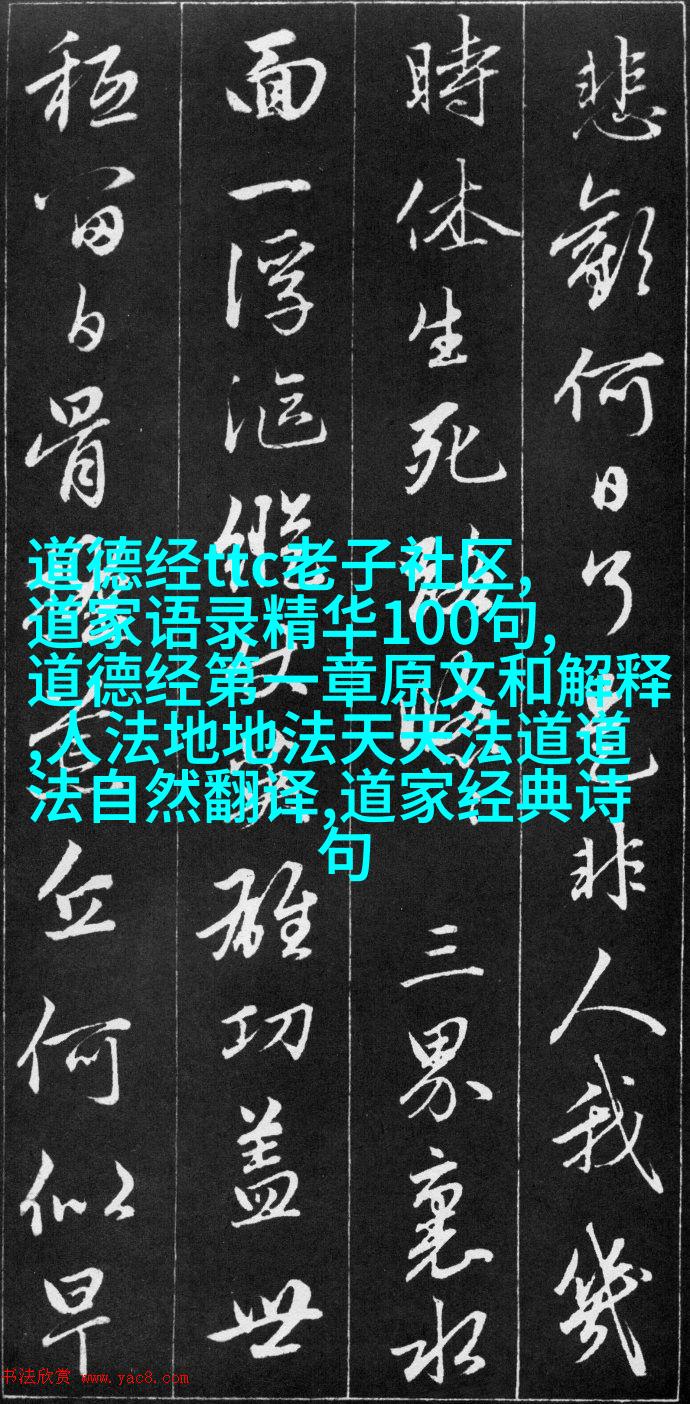 悲歡何日了是非人我幾
時休生死路三界裏水
面一浮漚縱使英雄功蓋世
秪留白骨掩荒丘何似早
道德经ttc老子社区,
道家语录精华100句,
道德经第一章原文和解释
,人法地地法天天法道道
法自然翻译,道家经典诗
句
书法欣赏 www.yac8.com